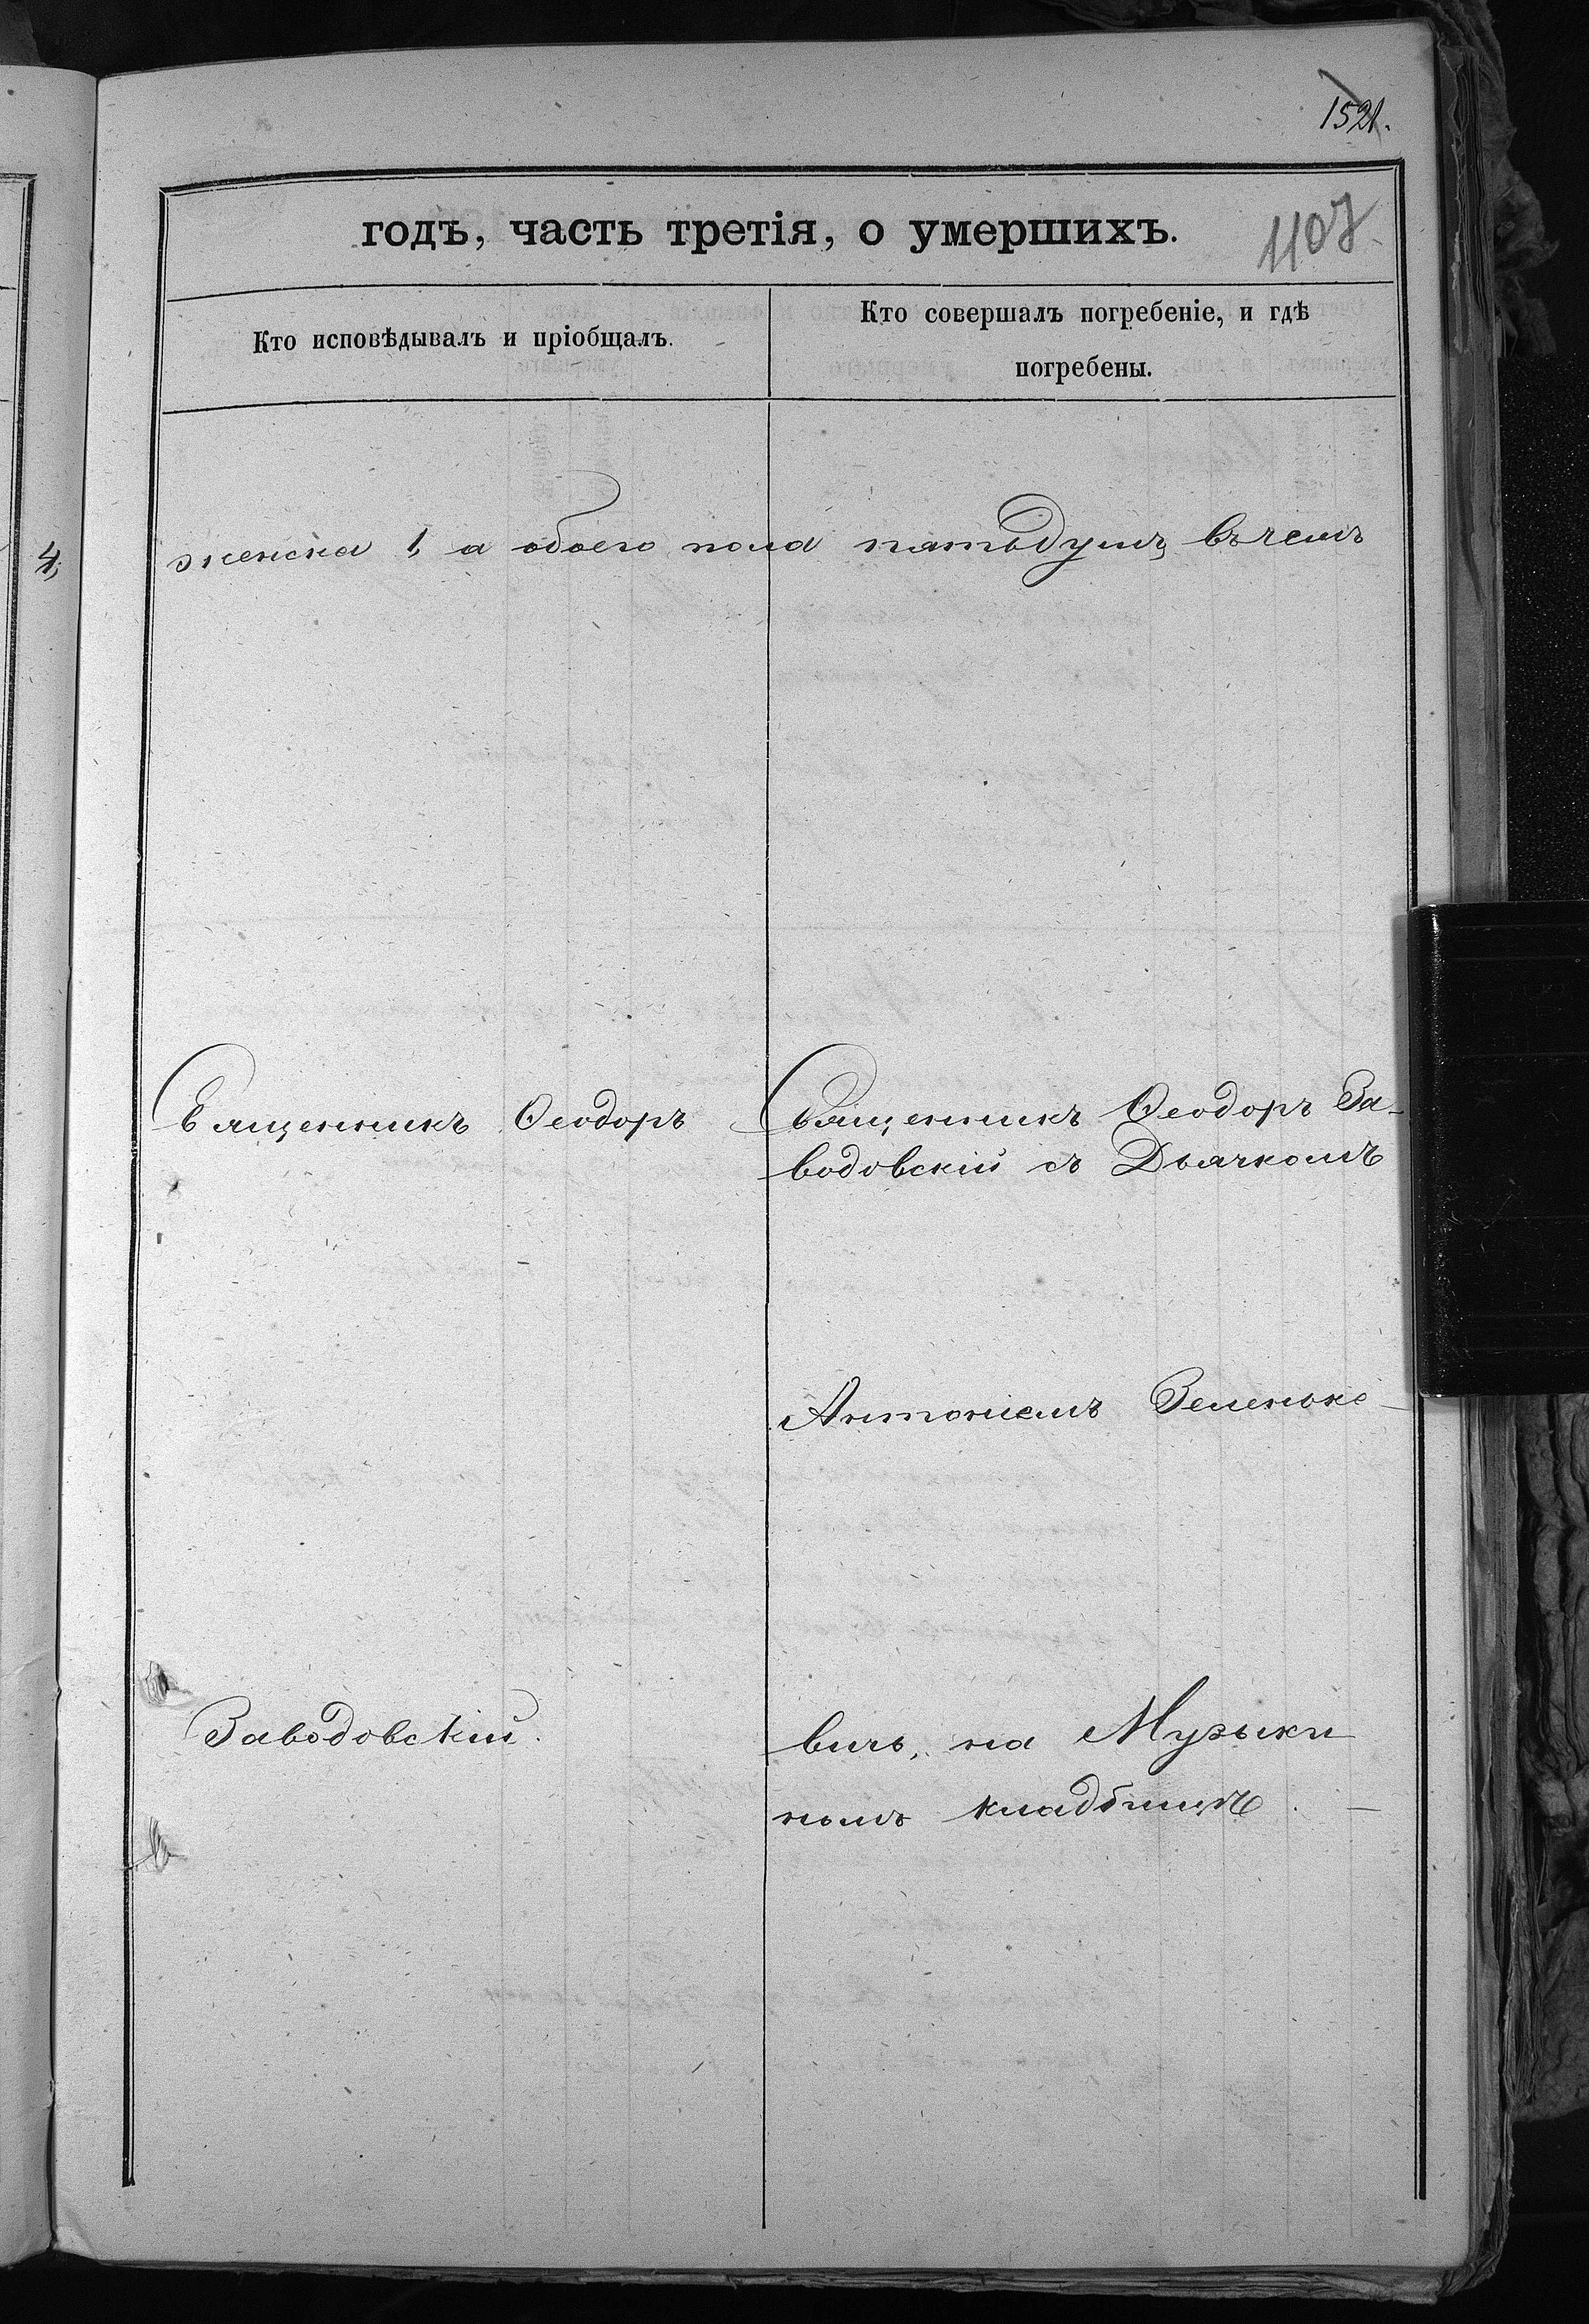 1521.
годъ, часть третія, о умершихъ.
1107
Кто исповѣдывалъ и пріобщалъ.
Кто совершалъ погребеніе, и гдѣ
погребены.
4,
женска 1, а обоего пола пятьдушъ, въ чемъ
Священникъ Ѳеодоръ
Священникъ Ѳеодоръ За-
водовскій съ Дьячкомъ
Антоніемъ Зеленке-
Заводовскій.
вичь, на Музыки
номъ кладбищѣ. —